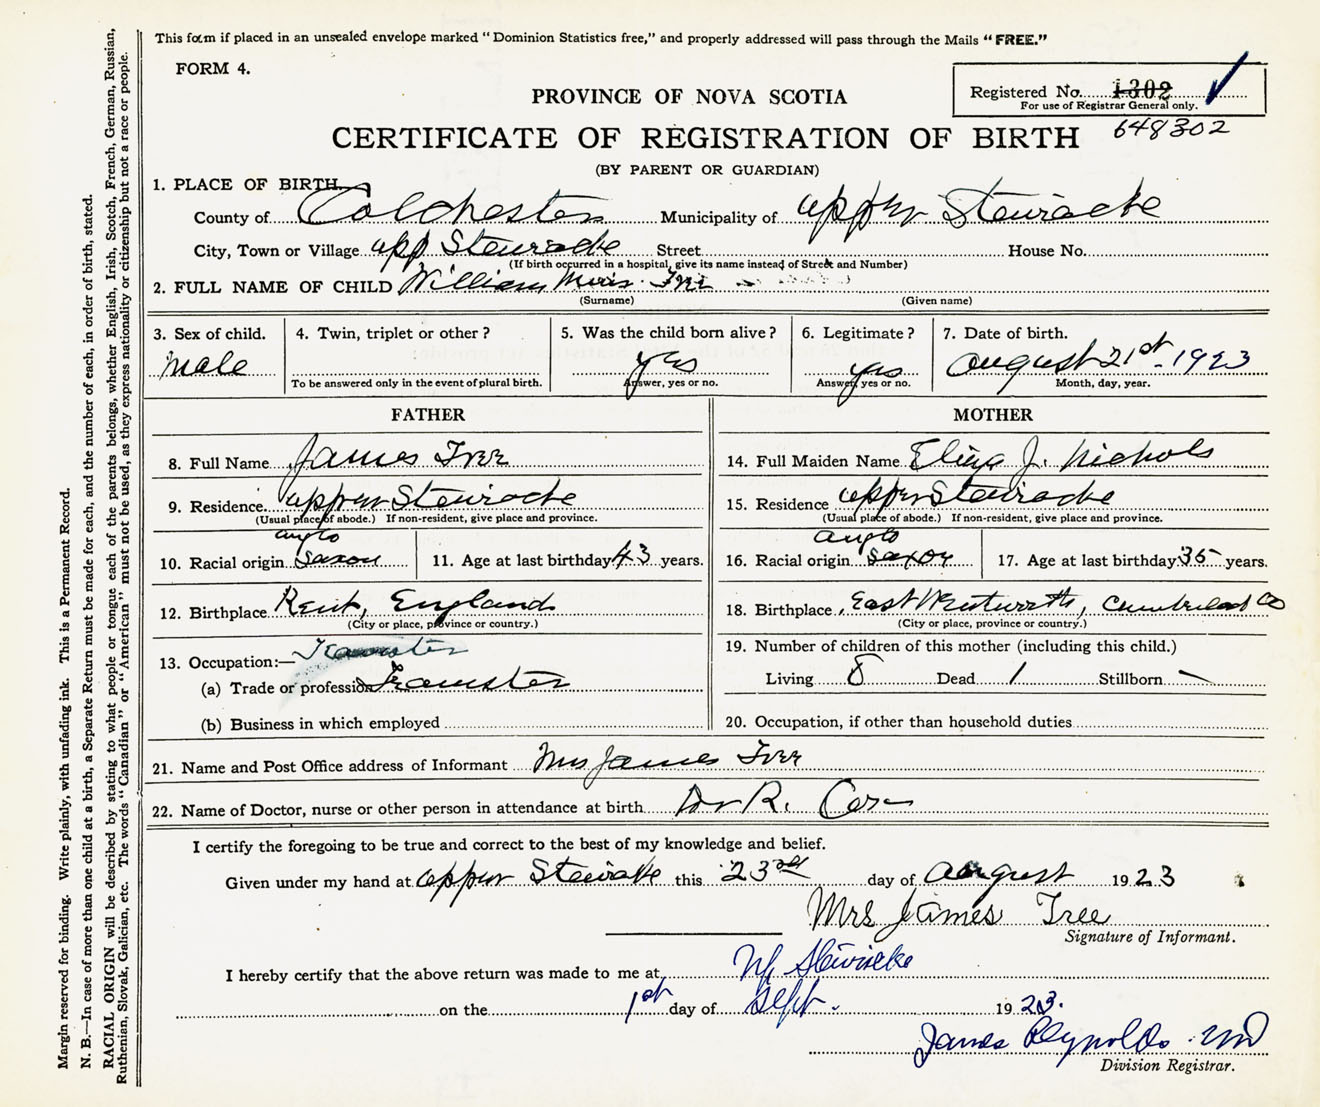 This form if placed in an unsealed envelope marked "Dominion Statistics free," and properly addressed will pass through the Mails "FREE."
FORM 4.
Registered No. 1302
For use of Registrar General only.
648302
PROVINCE OF NOVA SCOTIA
CERTIFICATE OF REGISTRATION OF BIRTH
(BY PARENT OR GUARDIAN)
1. PLACE OF BIRTH
County of Colchester Municipality of upper Stewiacke
City, Town or Village upp Stewiacke Street House No.
(If birth occurred in a hospital, give its name instead of Street and Number)
2. FULL NAME OF CHILD William
(Surname) (Given name)
3. Sex of child. 4. Twin, triplet or other? 5. Was the child born alive? 6. Legitimate? 7. Date of birth.
male yes yes August 21st. 1923
To be answered only in the event of plural birth. Answer, yes or no. Answer, yes or no. Month, day, year.
FATHER MOTHER
8. Full Name James Tree 14. Full Maiden Name Eliza J. Nichols
9. Residence upper Stewiacke 15. Residence upper Stewiacke
(Usual place of abode.) If non-resident, give place and province. (Usual place of abode.) If non-resident, give place and province.
anglo anglo
10. Racial origin Saxon 11. Age at last birthday 43 years. 16. Racial origin Saxon 17. Age at last birthday 35 years.
12. Birthplace Kent, England 18. Birthplace East Wentworth, Cumberland Co
(City or place, province or country.) (City or place, province or country.)
13. Occupation:— Teamster 19. Number of children of this mother (including this child.)
(a) Trade or profession Teamster Living 8 Dead 1 Stillborn —
(b) Business in which employed 20. Occupation, if other than household duties
21. Name and Post Office address of Informant Mrs James Tree
22. Name of Doctor, nurse or other person in attendance at birth Dr R. Cox
I certify the foregoing to be true and correct to the best of my knowledge and belief.
Given under my hand at upper Stewiacke this 23rd day of August 1923
Mrs James Tree
Signature of Informant.
I hereby certify that the above return was made to me at Up Stewiacke
on the 1st day of Sept. 1923.
James Reynolds MD
Division Registrar.
Margin reserved for binding. Write plainly, with unfading ink. This is a Permanent Record.
N. B.—In case of more than one child at a birth, a Separate Return must be made for each, and the number of each, in order of birth, stated.
RACIAL ORIGIN will be described by stating to what people or tongue each of the parents belongs, whether English, Irish, Scotch, French, German, Russian,
Ruthenian, Slovak, Galician, etc. The words "Canadian" or "American" must not be used, as they express nationality or citizenship but not a race or people.